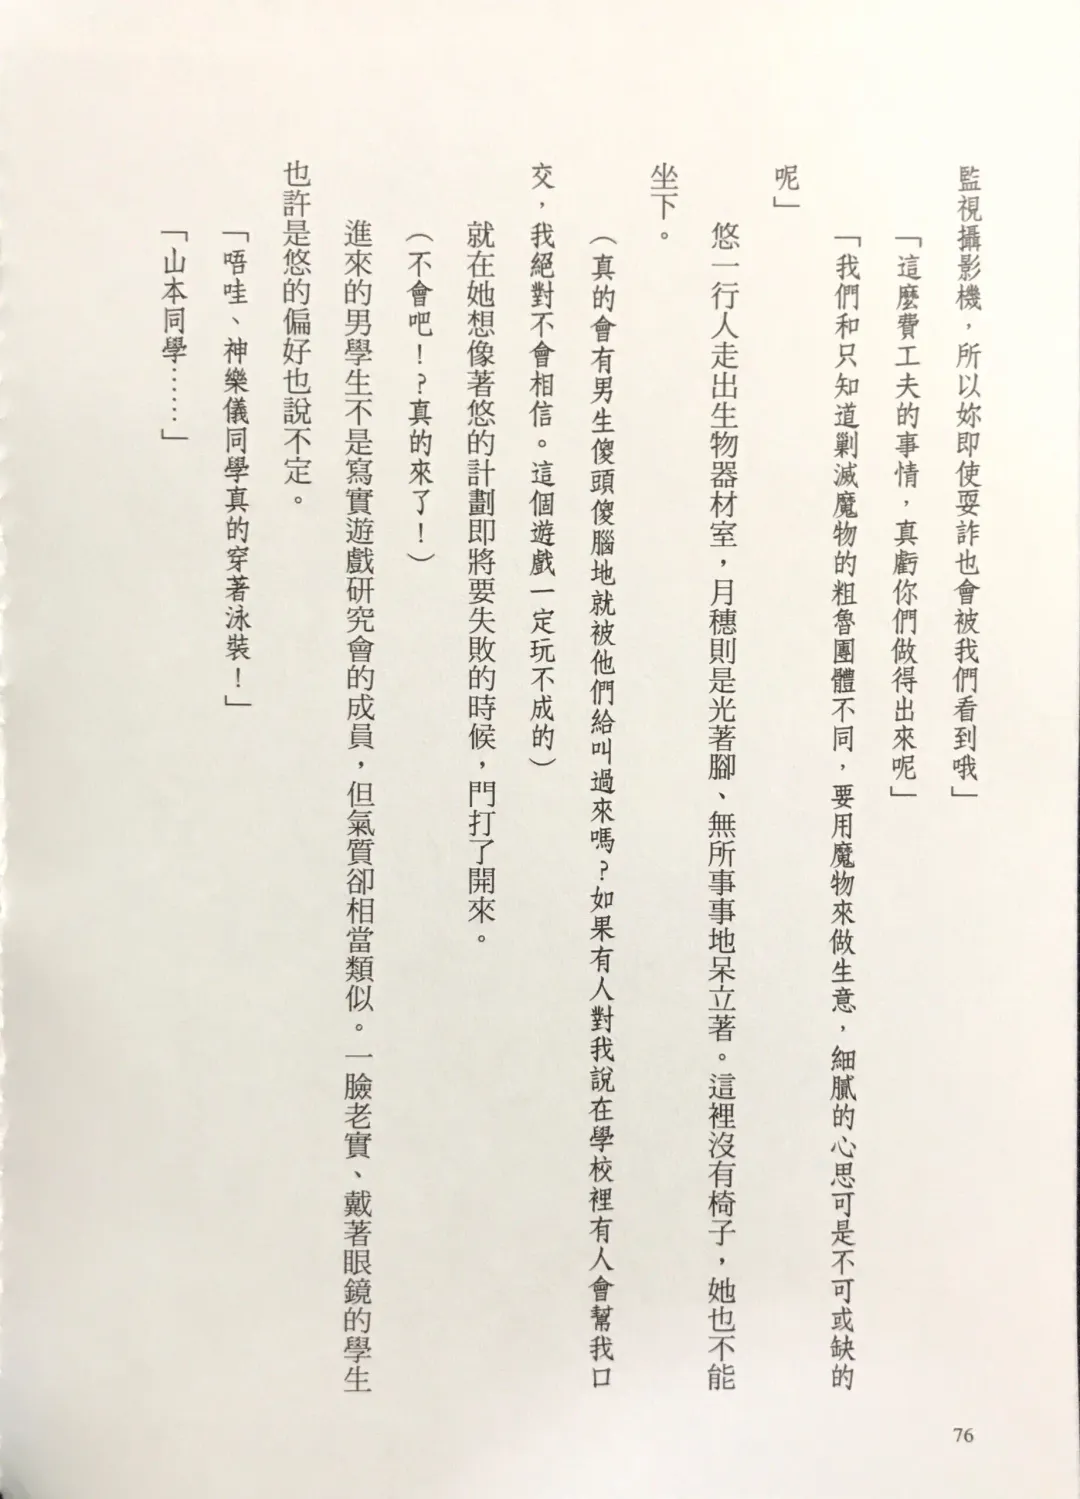 監視攝影機，所以妳即使耍詐也會被我們看到哦」
「這麼費工夫的事情，真虧你們做得出來呢」
「我們和只知道剿滅魔物的粗魯團體不同，要用魔物來做生意，細膩的心思可是不可或缺的
呢」
悠一行人走出生物器材室，月穗則是光著腳、無所事事地呆立著。這裡沒有椅子，她也不能
坐下。
（真的會有男生傻頭傻腦地就被他們給叫過來嗎？如果有人對我說在學校裡有人會幫我口
交，我絕對不會相信。這個遊戲一定玩不成的）
就在她想像著悠的計劃即將要失敗的時候，門打了開來。
（不會吧！？真的來了！）
進來的男學生不是寫實遊戲研究會的成員，但氣質卻相當類似。一臉老實、戴著眼鏡的學生
也許是悠的偏好也說不定。
「唔哇、神樂儀同學真的穿著泳裝！」
「山本同學……」
76